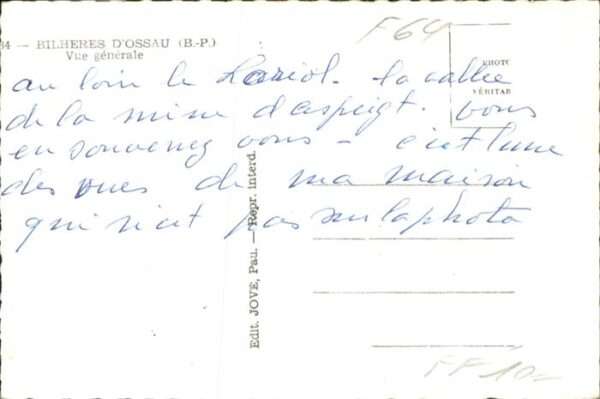 F64
34 — BILHERES D'OSSAU (B.-P.)
Vue générale
PHOTO
VÉRITAB
au loin le Lariol. la vallée
de la mine d'aspeigt. vous
en souvenez vous - c'est l'une
des vues de ma maison
qui n'est pas sur la photo
Edit. JOVE, Pau. — Repr. interd.
FF 10-